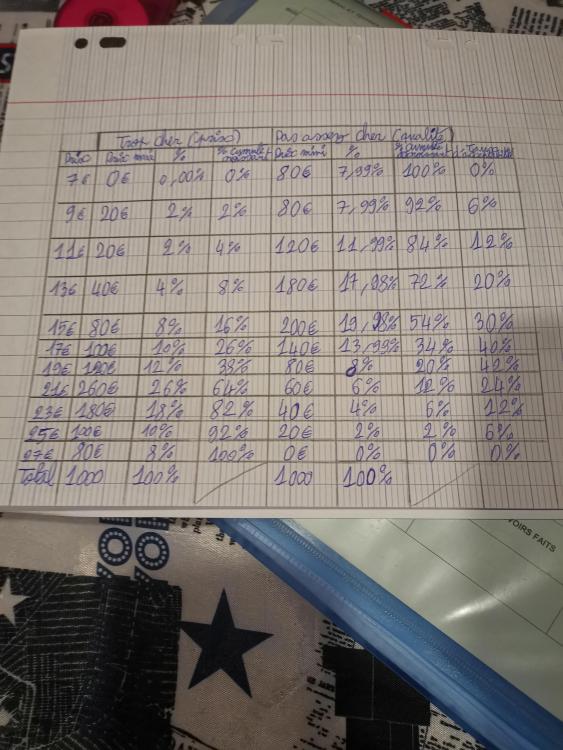 Trop cher (prix) Pas assez cher (qualité)
Prix Prix maxi % % cumulé croissant Prix mini % % cumulé
7€ 0€ 0,00% 0% 80€ 7,99% 100% 0%
9€ 20€ 2% 2% 80€ 7,99% 92% 6%
11€ 20€ 2% 4% 120€ 11,99% 84% 12%
13€ 40€ 4% 8% 180€ 17,98% 72% 20%
15€ 80€ 8% 16% 200€ 19,98% 54% 30%
17€ 100€ 10% 26% 140€ 13,99% 34% 40%
19€ 120€ 12% 38% 80€ 8% 20% 42%
21€ 260€ 26% 64% 60€ 6% 12% 24%
23€ 180€ 18% 82% 40€ 4% 6% 12%
25€ 100€ 10% 92% 20€ 2% 2% 6%
27€ 80€ 8% 100% 0€ 0% 0% 0%
Total 1000 100% 1000 100%
VOIRS FAITS